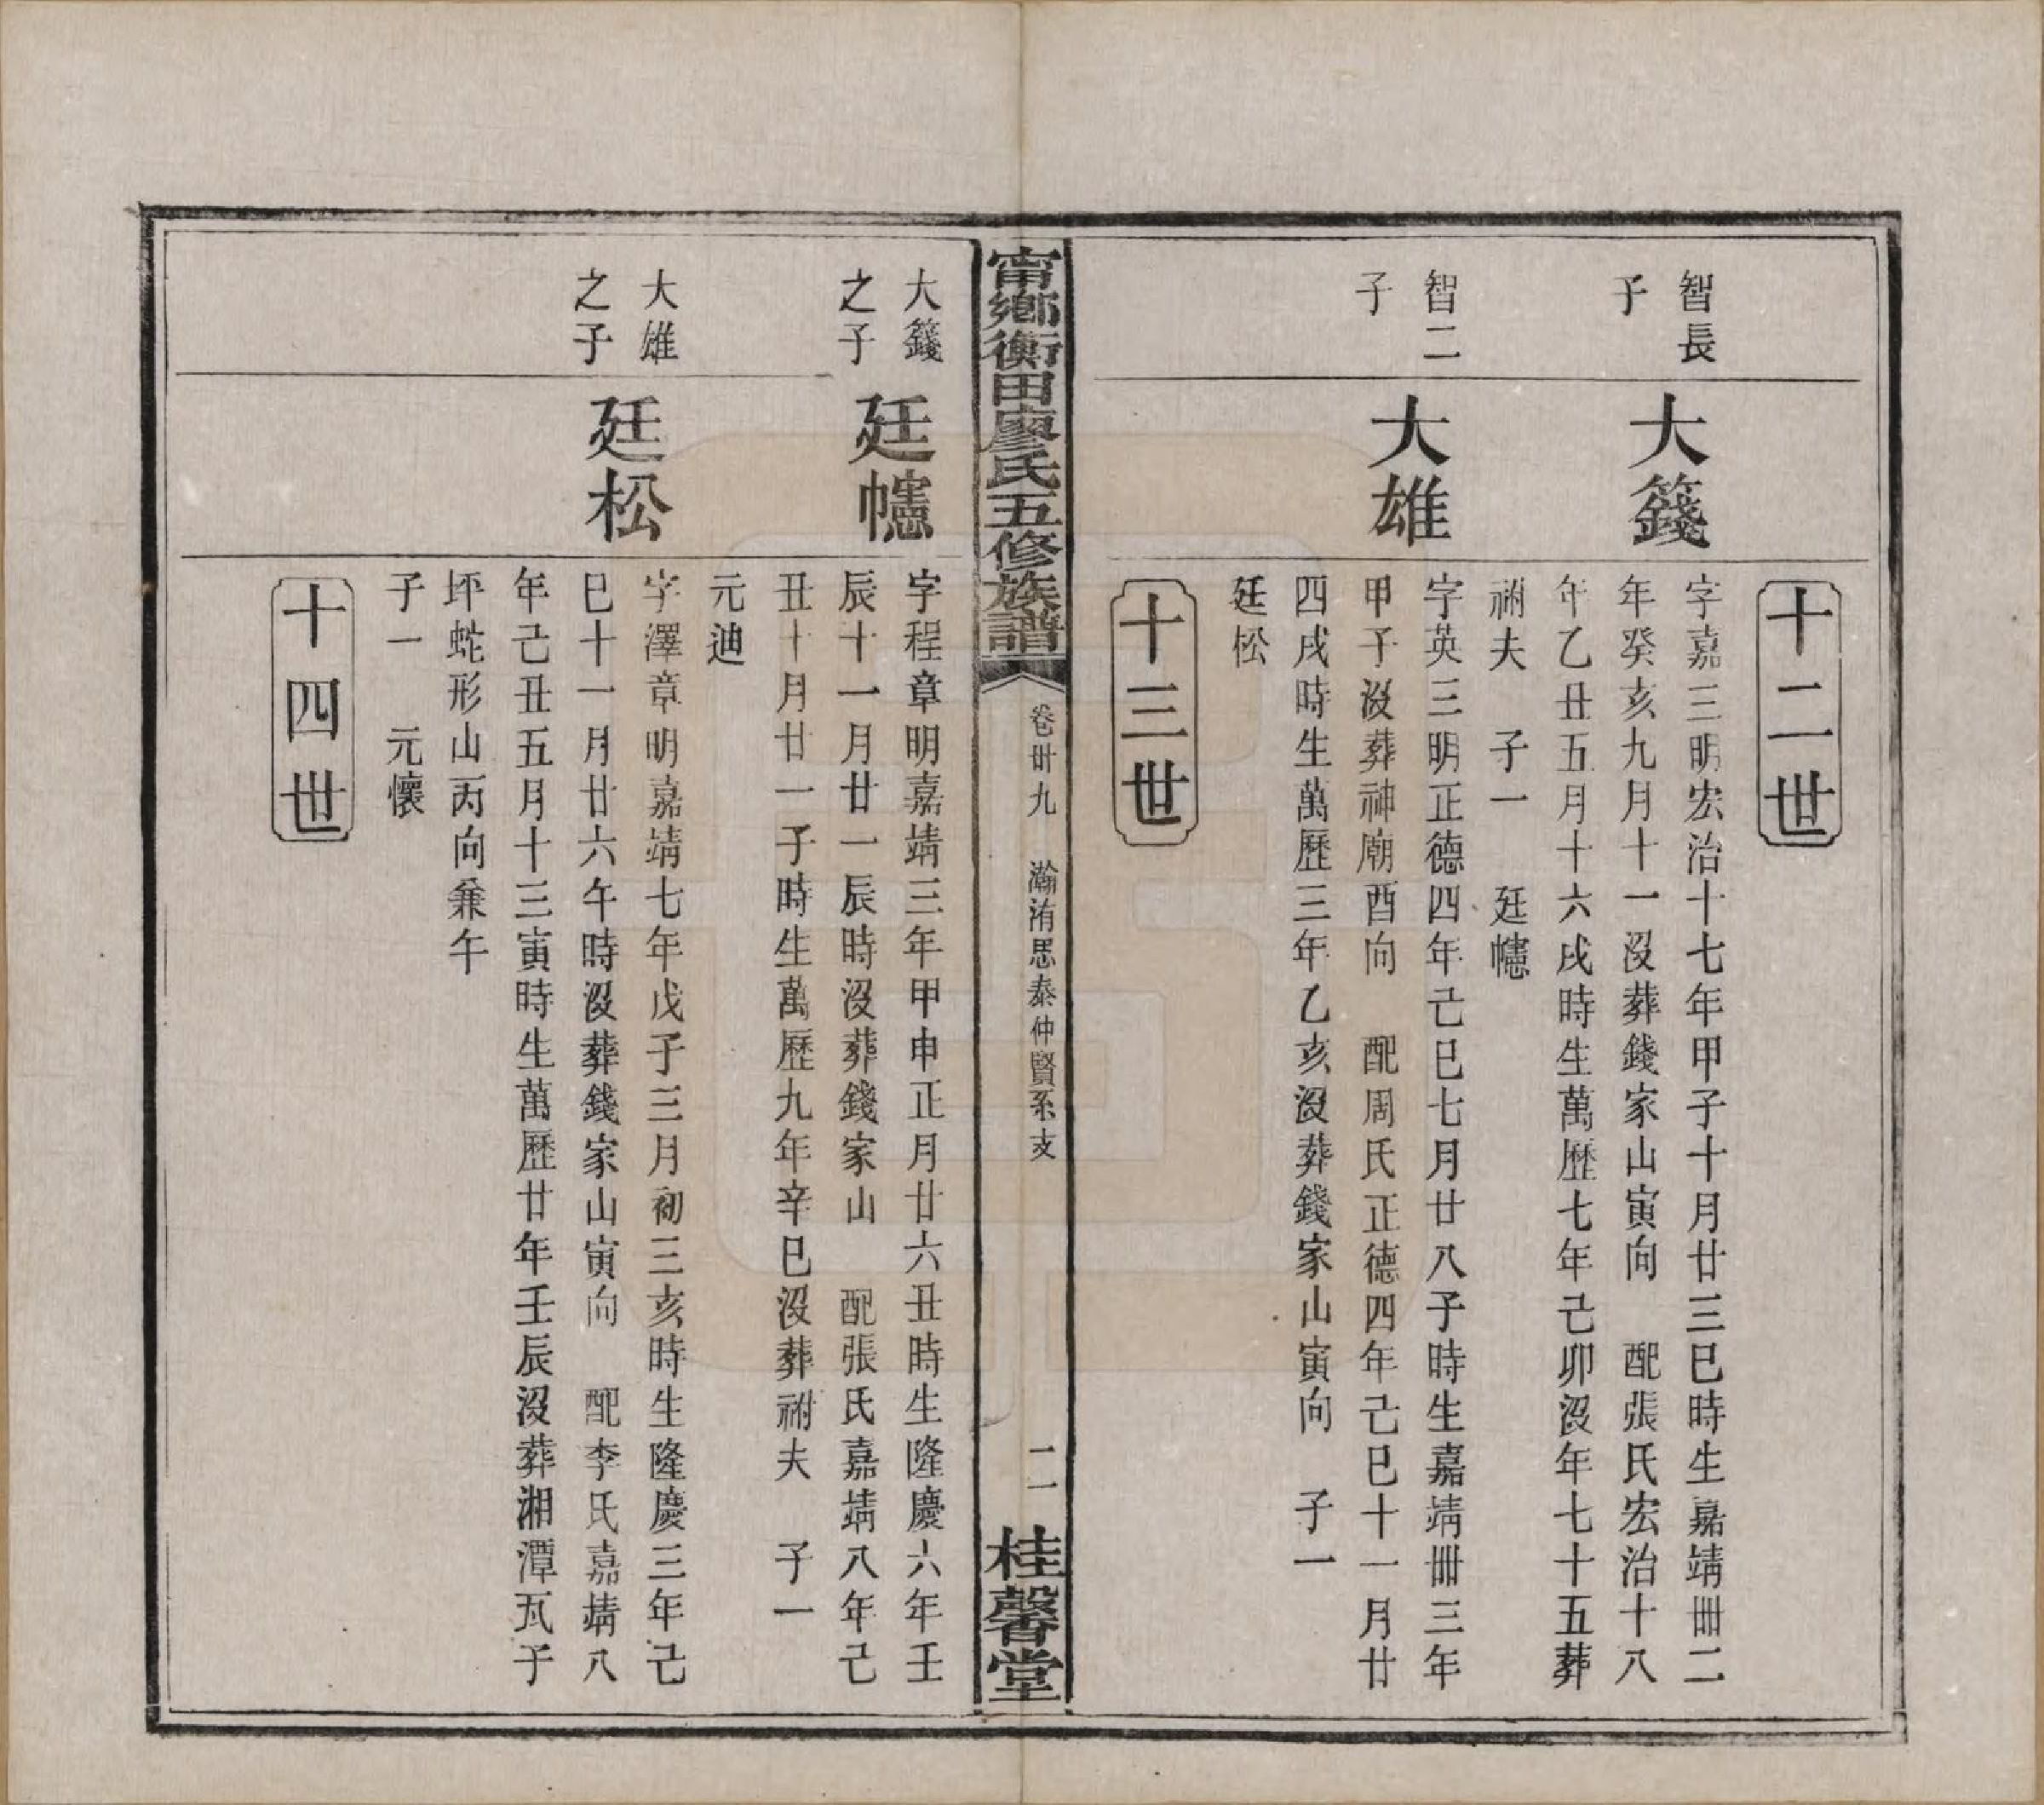 十二世
智長
子
大籛
字嘉三明宏治十七年甲子十月廿三巳時生嘉靖卌二
年癸亥九月十一沒葬錢家山寅向　配張氏宏治十八
年乙丑五月十六戌時生萬歷七年己卯沒年七十五葬
祔夫　子一　廷幰
智二
子
大雄
字英三明正德四年己巳七月廿八子時生嘉靖卌三年
甲子沒葬神廟酉向　配周氏正德四年己巳十一月廿
四戌時生萬歷三年乙亥沒葬錢家山寅向　子一
廷松
十三世
甯鄉衡田廖氏五修族譜
卷卅九　瀚洧思泰仲賢系支
二
桂馨堂
大籛
之子
廷幰
字程章明嘉靖三年甲申正月廿六丑時生隆慶六年壬
辰十一月廿一辰時沒葬錢家山　配張氏嘉靖八年己
丑十月廿一子時生萬歷九年辛巳沒葬祔夫　子一
元迪
大雄
之子
廷松
字澤章明嘉靖七年戊子三月初三亥時生隆慶三年己
巳十一月廿六午時沒葬錢家山寅向　配李氏嘉靖八
年己丑五月十三寅時生萬歷廿年壬辰沒葬湘潭瓦子
坪蛇形山丙向兼午
子一　元懷
十四世